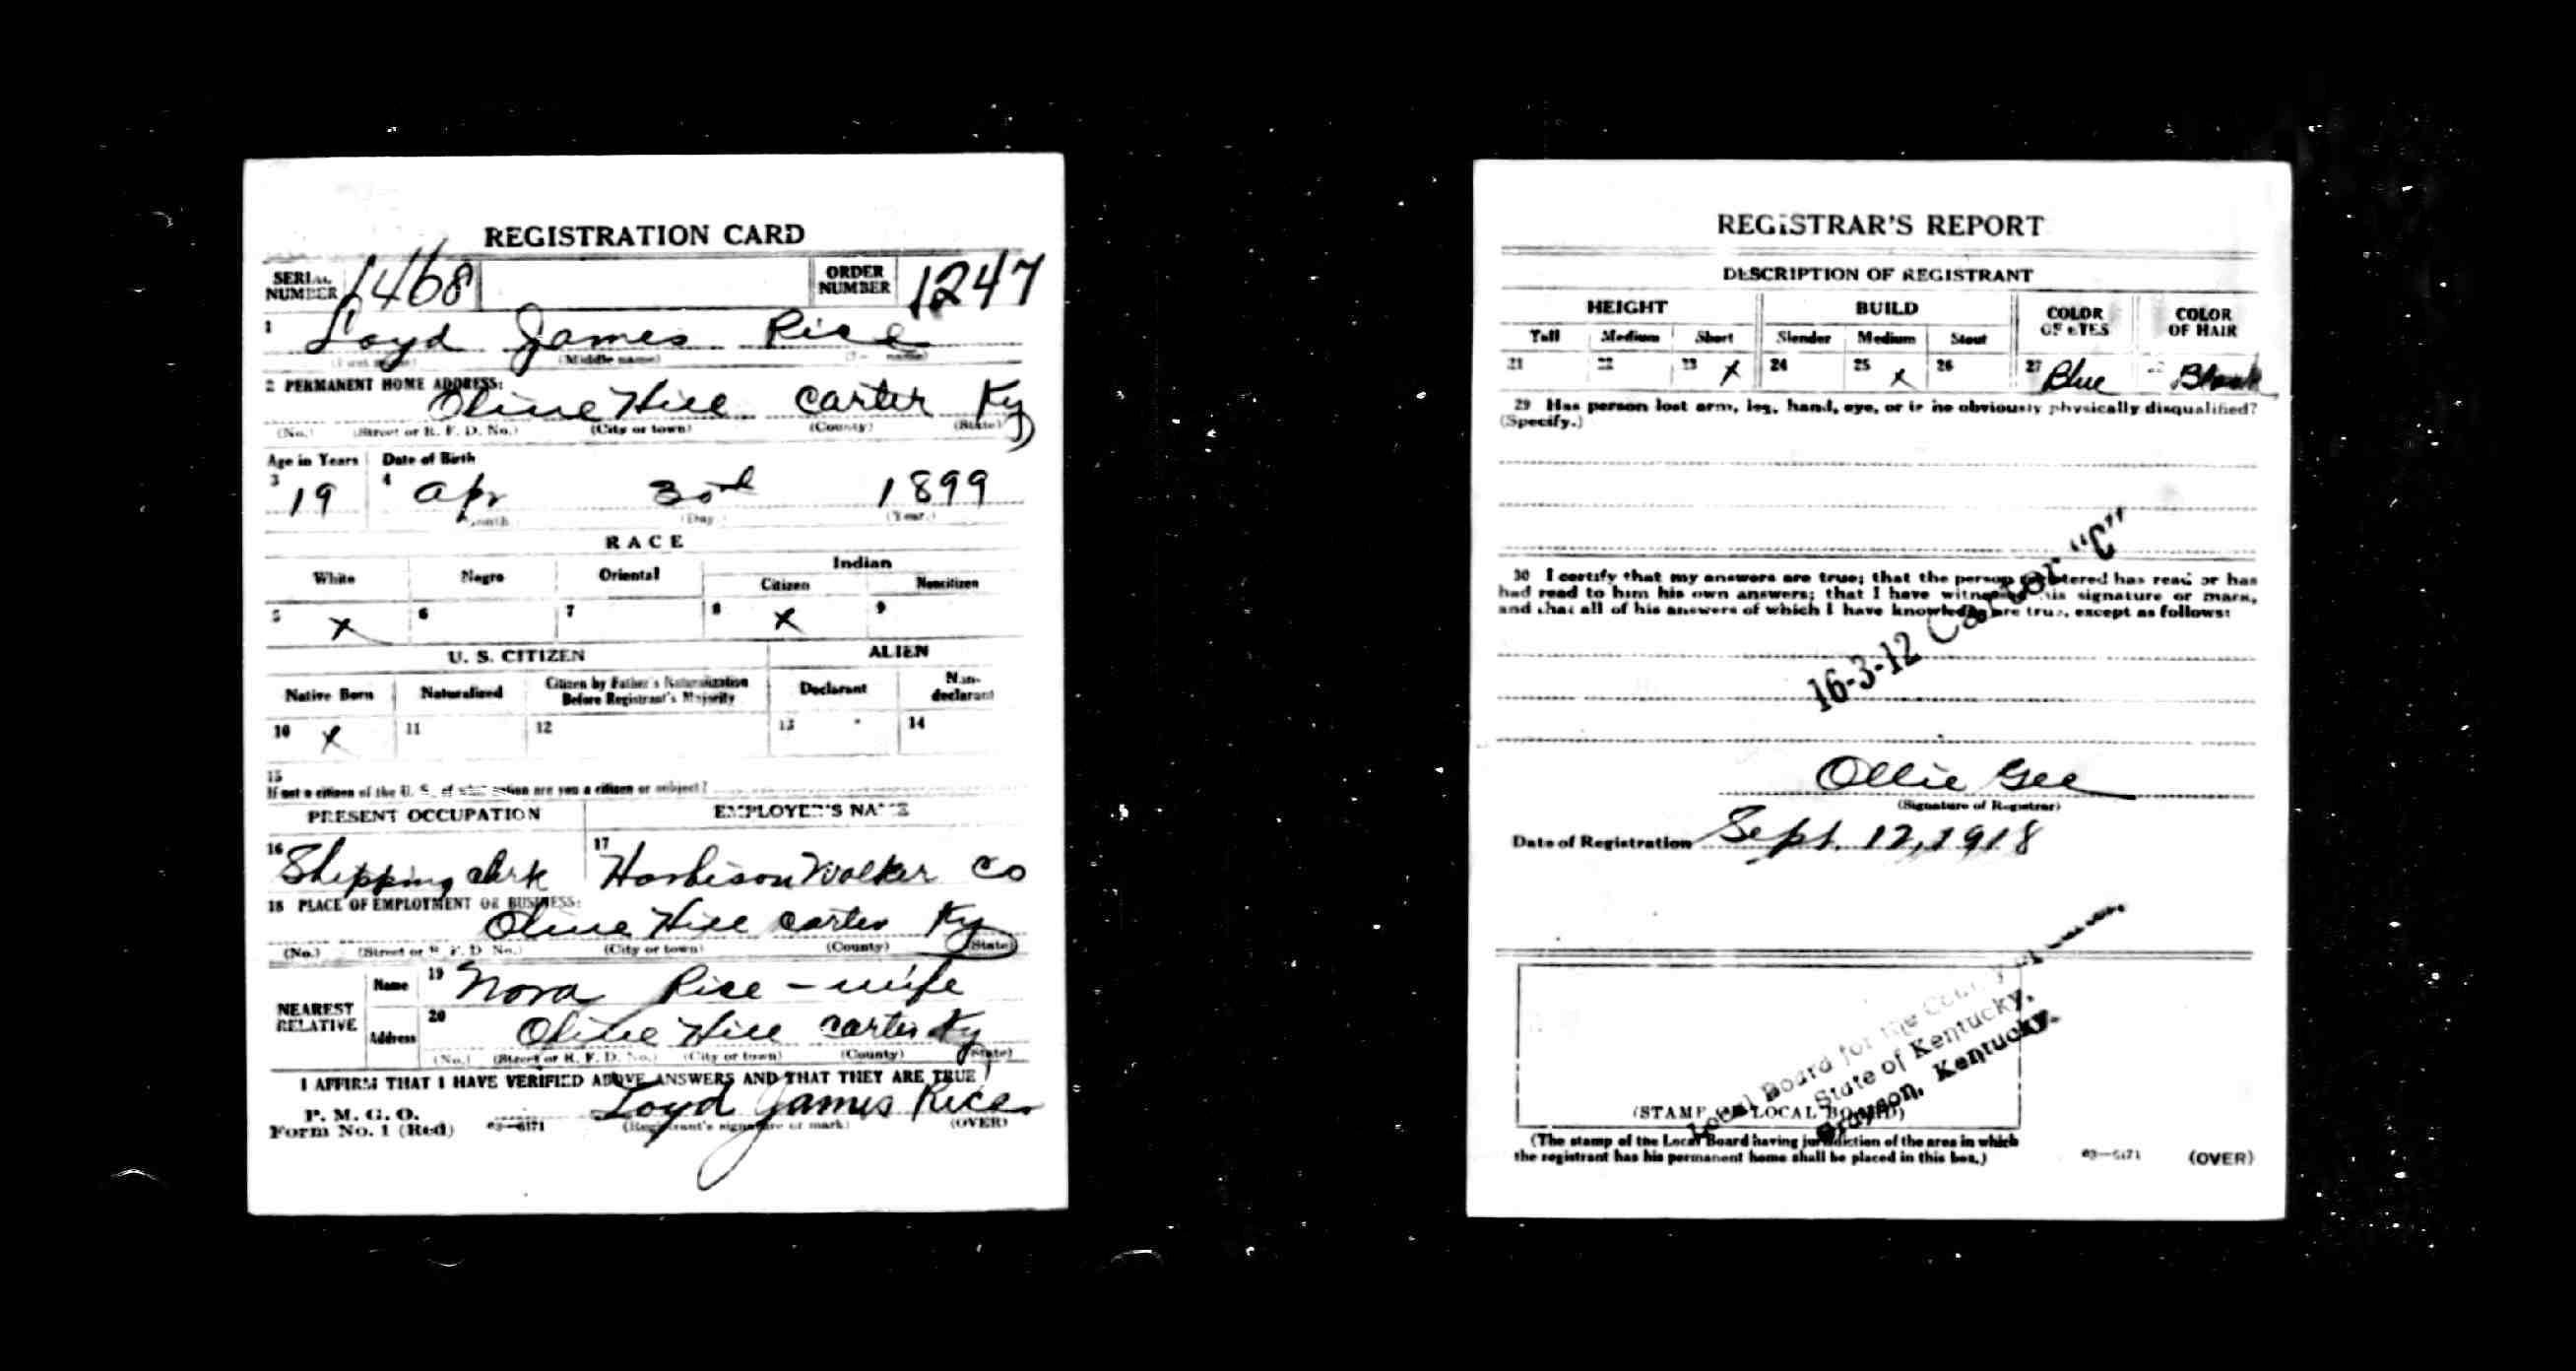 REGISTRATION CARD
SERIAL NUMBER 1468 ORDER NUMBER 1247
1 Loyd James Rice
(Middle name) name)
2 PERMANENT HOME ADDRESS:
Olive Hill Carter Ky
(No.) (Street or R. F. D. No.) (City or town) (County) (State)
Age in Years Date of Birth
3 19 4 Apr 30th 1899
(Day) (Year.)
RACE
White Negro Oriental Indian
Citizen Noncitizen
5 X 6 7 8 X 9
U. S. CITIZEN ALIEN
Native Born Naturalized Citizen by Father's Naturalization Before Registrant's Majority Declarant Non-declarant
10 X 11 12 13 14
15
If not a citizen of the U. S., of nation are you a citizen or subject?
PRESENT OCCUPATION EMPLOYER'S NAME
16 Shipping clerk 17 Harbison Walker Co
18 PLACE OF EMPLOYMENT OR BUSINESS:
Olive Hill Carter Ky
(No.) (Street or R. F. D. No.) (City or town) (County) (State)
NEAREST RELATIVE
Name 19 Nora Rice - wife
Address 20 Olive Hill Carter Ky
(No.) (Street or R. F. D. No.) (City or town) (County) (State)
I AFFIRM THAT I HAVE VERIFIED ABOVE ANSWERS AND THAT THEY ARE TRUE
P. M. G. O.
Form No. 1 (Red) 03—6171 Loyd James Rice
(Registrant's signature or mark) (OVER)
REGISTRAR'S REPORT
DESCRIPTION OF REGISTRANT
HEIGHT BUILD COLOR OF EYES COLOR OF HAIR
Tall Medium Short Slender Medium Stout
21 22 23 X 24 25 X 26 27 Blue Black
29 Has person lost arm, leg, hand, eye, or is he obviously physically disqualified?
(Specify.)
30 I certify that my answers are true; that the person registered has read or has
had read to him his own answers; that I have witnessed his signature or mark,
and that all of his answers of which I have knowledge are true, except as follows:
16-3-12 Carter "C"
Ollie Gee
(Signature of Registrar)
Date of Registration Sept. 12, 1918
Local Board for the County of Carter,
State of Kentucky,
Grayson, Kentucky.
(STAMP OF LOCAL BOARD)
(The stamp of the Local Board having jurisdiction of the area in which
the registrant has his permanent home shall be placed in this box.)
03—6171 (OVER)